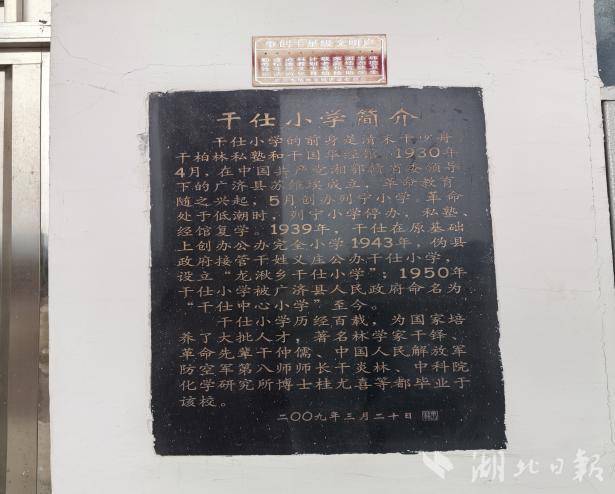 争创十星级文明户
干仕小学简介
干仕小学的前身是清末干少舟
干柏林私塾和干国华经馆。1930年
4月，在中国共产党湘鄂赣省委领导
下的广济县苏维埃成立，革命教育
随之兴起，5月创办列宁小学。革命
处于低潮时，列宁小学停办，私塾、
经馆复学。1939年，干仕在原基础
上创办公办完全小学1943年，伪县
政府接管干姓义庄公办干仕小学，
设立“龙湫乡干仕小学”；1950年
干仕小学被广济县人民政府命名为
“干仕中心小学”至今。
干仕小学历经百载，为国家培
养了大批人才，著名林学家干铎、
革命先辈干仲儒、中国人民解放军
防空军第八师师长干炎林、中科院
化学研究所博士桂尤喜等都毕业于
该校。
二〇〇九年三月二十日
湖北日报